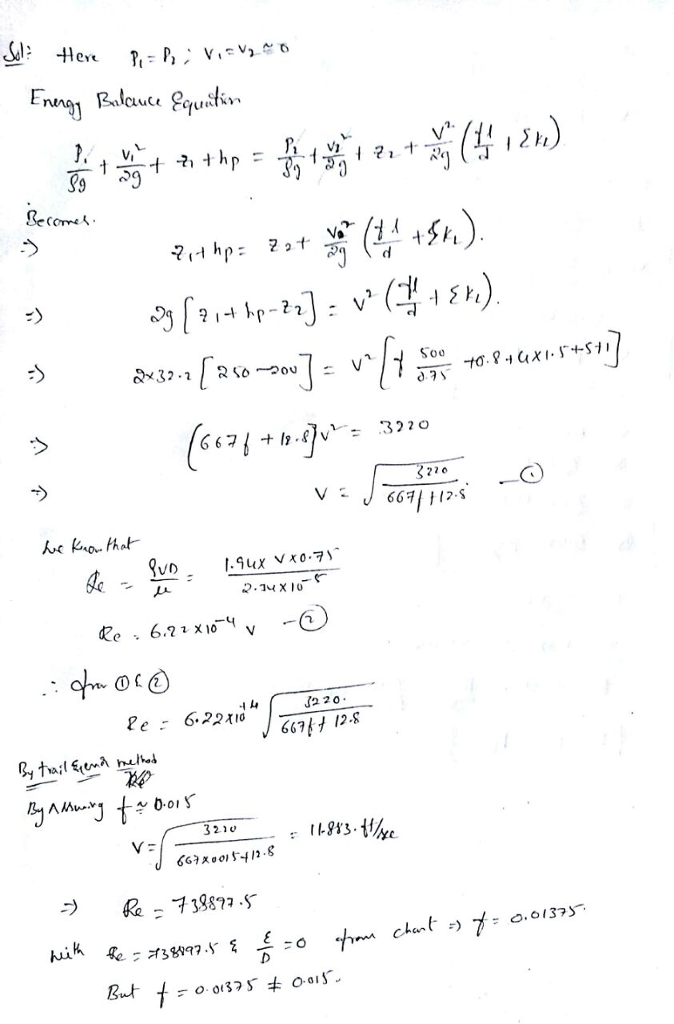 Sol: Here P₁ = P₂ ; V₁ = V₂ ≈ 0
Energy Balance Equation
P₁/ρg + V₁²/2g + z₁ + hp = P₂/ρg + V₂²/2g + z₂ + V²/2g (fl/d + ΣkL)
Becomes.
⇒ z₁ + hp = z₂ + V²/2g (fl/d + ΣkL).
⇒ 2g [z₁ + hp - z₂] = V² (fl/d + ΣkL).
⇒ 2×32.2 [250 - 200] = V² [f 500/0.75 + 0.8 + 4×1.5 + 5 + 1]
⇒ [667f + 12.8] V² = 3220
⇒ V = √(3220/667f + 12.8) — ①
We Know that
Re = ρVD/μ = 1.94 × V × 0.75/2.34 × 10⁻⁵
Re = 6.22 × 10⁻⁴ V — ②
∴ from ① & ②
Re = 6.22 × 10⁺⁴ √(3220./667f + 12.8)
By trail & error method
By Assuming f ≈ 0.015
V = √(3220/667×0015+12.8) = 11.883. ft/sec
⇒ Re = 738897.5
with Re = 738897.5 & ε/D = 0 from chart ⇒ f = 0.01375.
But f = 0.01375 ≠ 0.015.